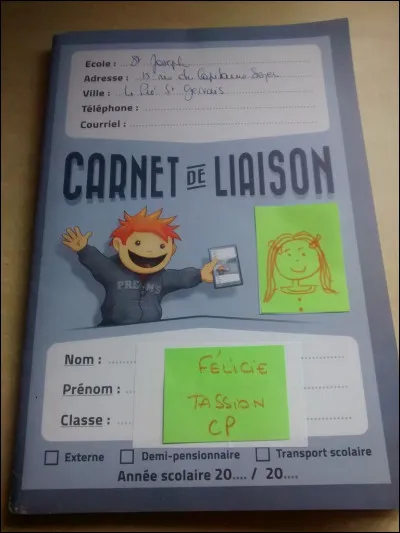 Ecole : St Joseph
Adresse : 15 rue du Capitaine Soyer
Ville : Le Pré St Gervais
Téléphone :
Courriel :
CARNET DE LIAISON
Nom :
Prénom :
Classe :
FÉLICIE
TASSION
CP
Externe
Demi-pensionnaire
Transport scolaire
Année scolaire 20.... / 20....